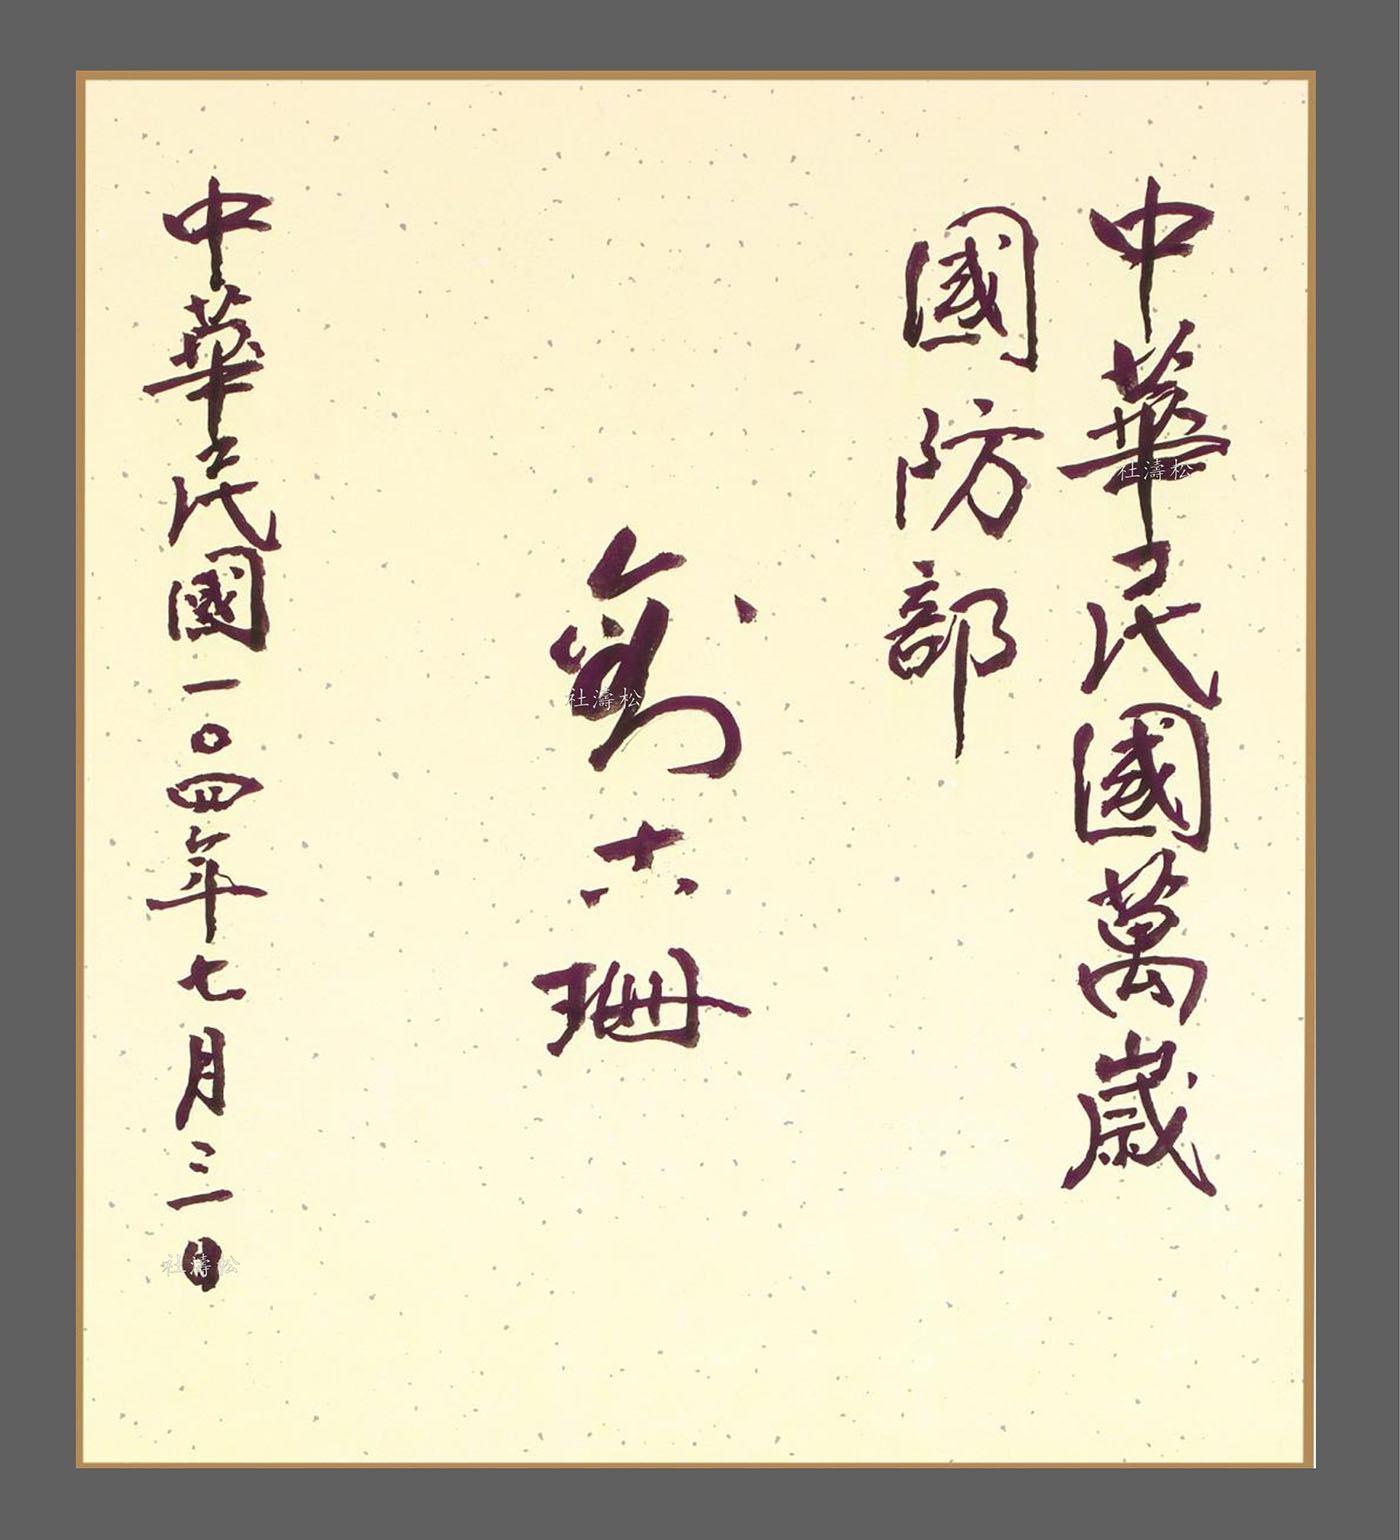 中華民國萬歲
國防部
劉六珊
中華民國一〇四年七月三一日
杜濤松
杜濤松
杜濤松